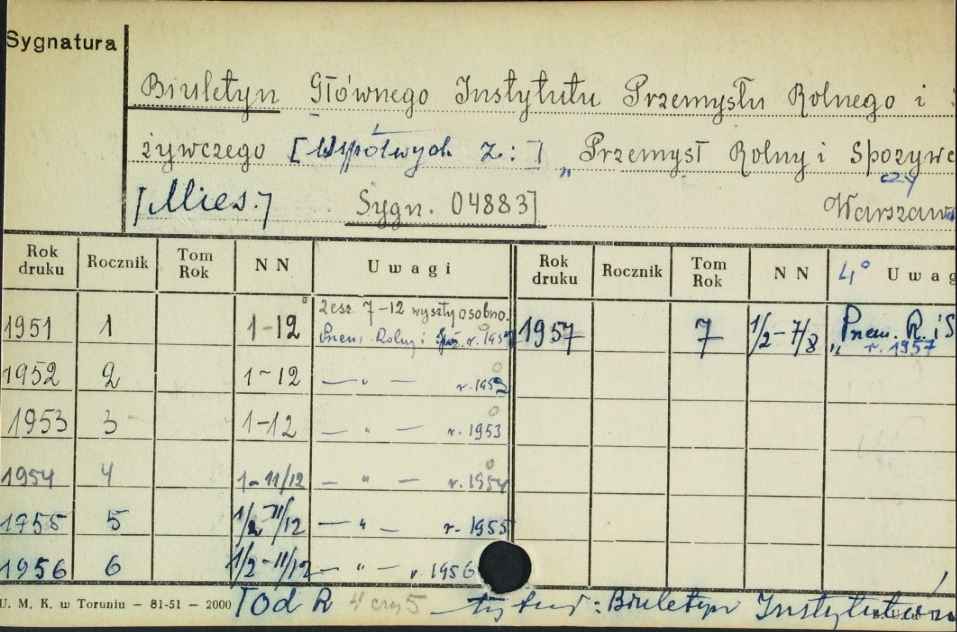 Sygnatura
Biuletyn Głównego Instytutu Przemysłu Rolnego i
żywczego [Współwyd. z:] „Przemysł Rolny i Spożyw
czy
[Mies.] Sygn. 04883] Warszawa
Rok druku Rocznik Tom Rok NN Uwagi Rok druku Rocznik Tom Rok NN 4° Uwag
1951 1 1-12 zesz. 7-12 wyszły osobno. 1957 7 1/2-7/8 „Przem. R. i S
Przem. Rolny i Spoż. r. 1951 r. 1957
1952 2 1-12 — " — r. 1952
1953 3 1-12 — " — r. 1953
1954 4 1-11/12 — " — r. 1954
1955 5 1/2-11/12 — " — r. 1955
1956 6 1/2-11/12 — " — r. 1956
U. M. K. w Toruniu — 81-51 — 2000 [Od R 5 tytuł: Biuletyn Instytutów